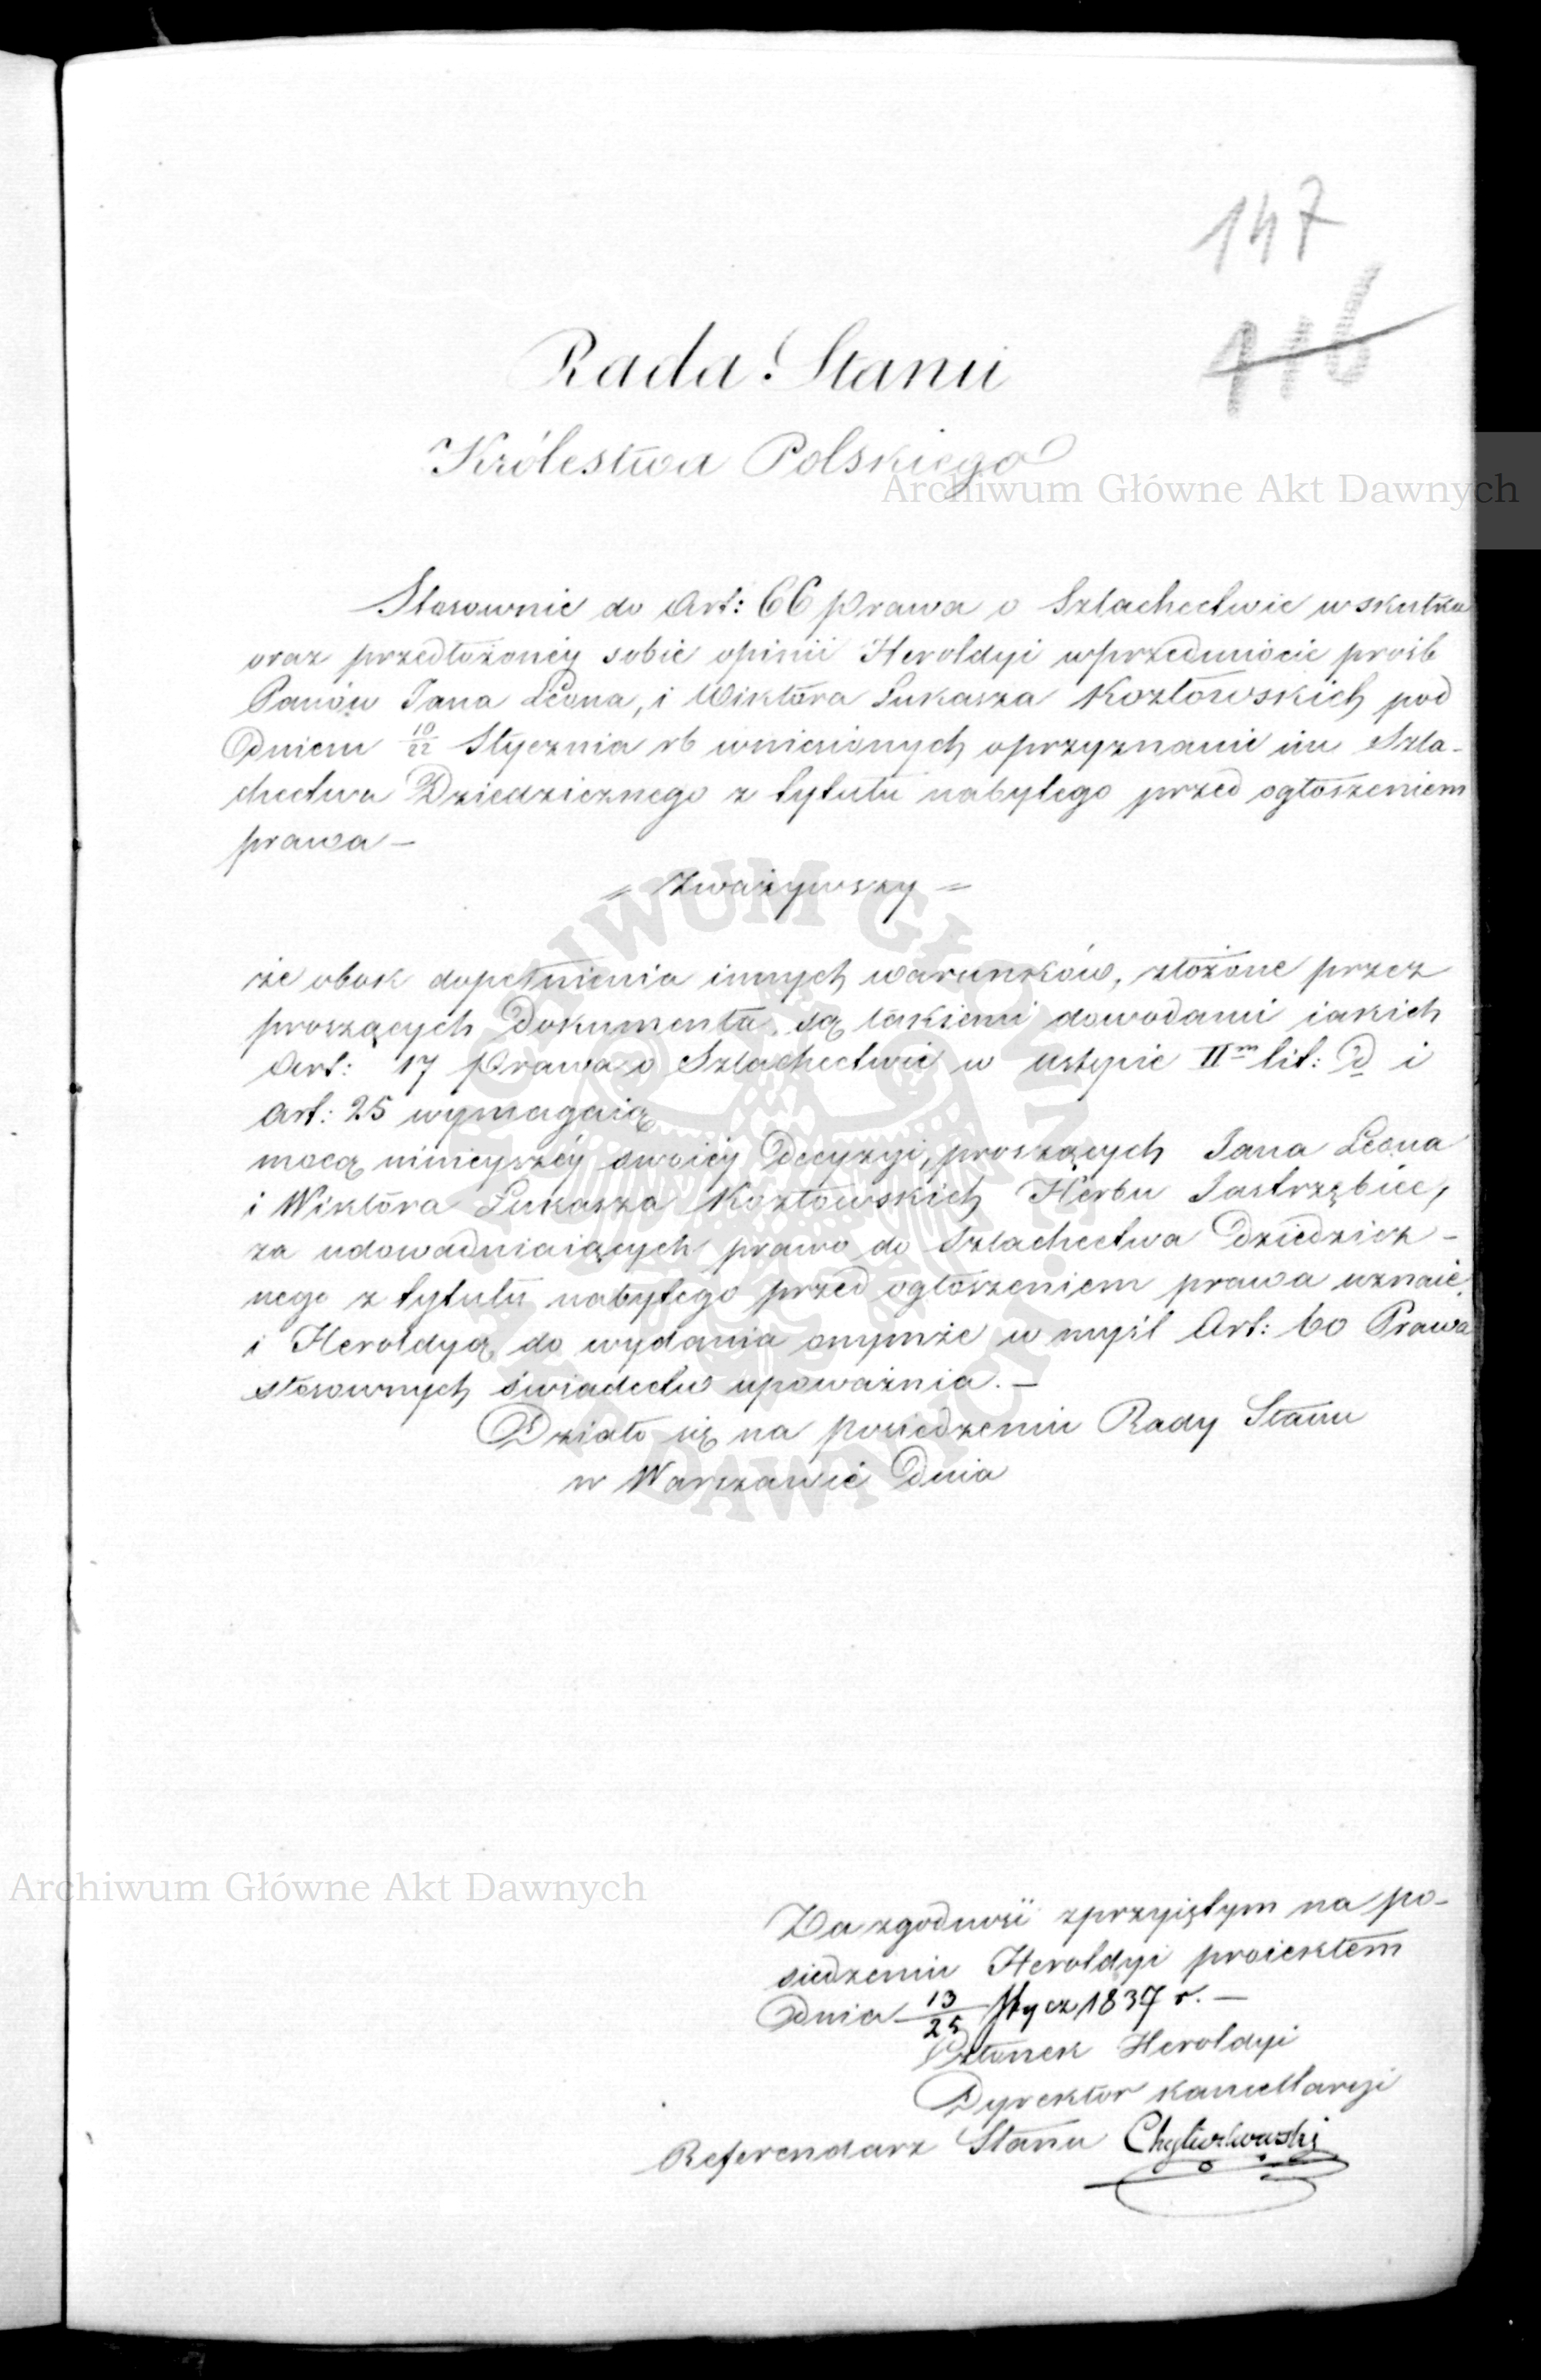 147
116
Rada Stanu
Królestwa Polskiego
Archiwum Główne Akt Dawnych
Stosownie do Art: 66 prawa o Szlachectwie w skutku
oraz przedłożonéy sobie opinii Heroldyi w przedmiocie prośb
Panów Jana Leona, i Wiktora Łukasza Kozłowskich pod
Dniem 10/22 Stycznia rb wniesionych o przyznanie im Szla-
chectwa Dziedzicznego z tytułu nabytego przed ogłoszeniem
prawa –
= Zważywszy =
że obok dopełnienia innych warunków, złożone przez
proszących Dokumenta, są takiemi dowodami iakich
Art: 17 Prawa o Szlachectwie w ustępie IIm lit: D i
Art: 25 wymagaią
mocą ninieyszéy swoiéy Decyzyi, proszących Jana Leona
i Wiktora Łukasza Kozłowskich Herbu Jastrzębiec,
za udowadniaiących prawo do Szlachectwa Dziedzicz-
nego z tytułu nabytego przed ogłoszeniem prawa uznaie,
i Heroldyą do wydania onymże w myśl Art: 60 Prawa
stosownych świadectw upoważnia. –
Działo się na posiedzeniu Rady Stanu
w Warszawie Dnia
Archiwum Główne Akt Dawnych
Za zgodność z przyiętym na po-
siedzeniu Heroldyi proiektem
Dnia 13/25 Stycz 1837 r. –
Członek Heroldyi
Dyrektor Kancellaryi
Referendarz Stanu